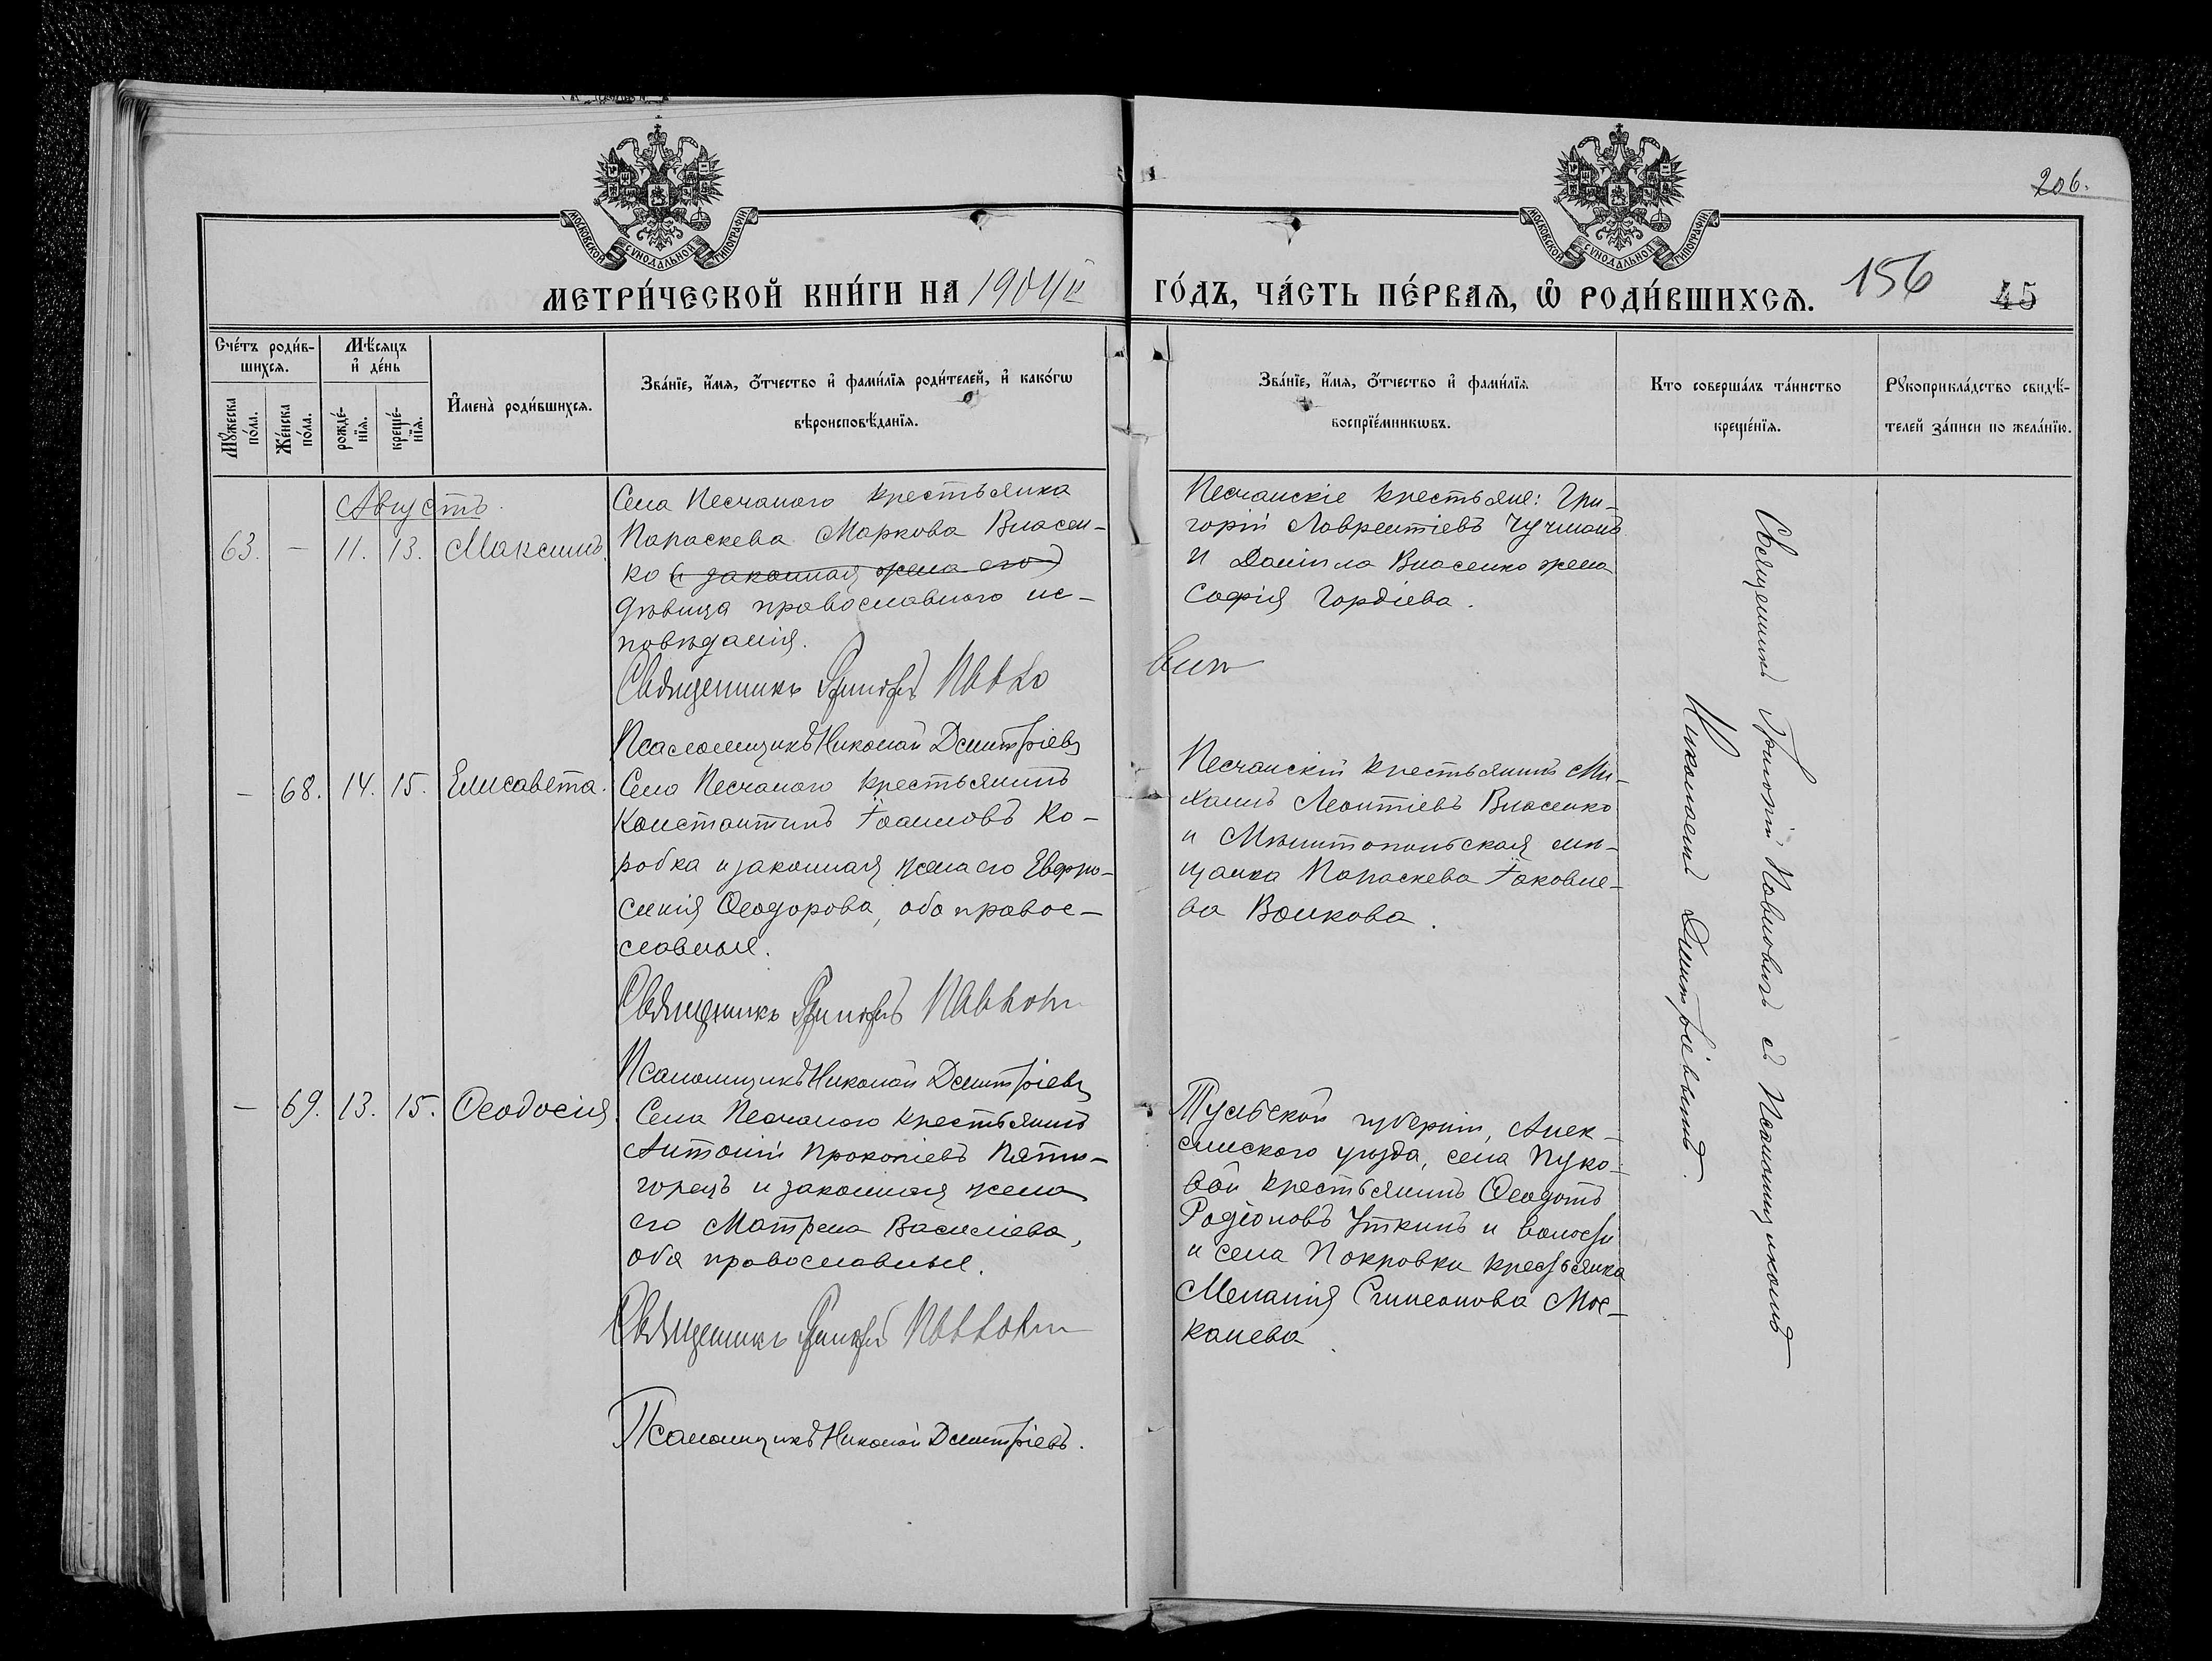 206.
МОСКОВСКОЙ СѴНОДАЛЬНОЙ ТИПОГРАФІИ
МОСКОВСКОЙ СѴНОДАЛЬНОЙ ТИПОГРАФІИ
МЕТРИ́ЧЕСКОЙ КНИ́ГИ НА 1904й ГО́ДЪ, ЧА́СТЬ ПЕ́РВАѦ, Ѡ҆ РОДИ́ВШИХСѦ. 156 45
Сче́тъ роди́в-
шихсѧ.
Мꙋ́жеска
по́ла.
Же́нска
по́ла.
Мѣ́сѧцъ
и҆ де́нь
рожде́-
нїѧ.
креще́-
нїѧ.
И҆мена̀ роди́вшихсѧ.
Зва́нїе, и҆́мѧ, ѻ҆́тчество и҆ фами́лїѧ роди́телей, и҆ како́гѡ
вѣроисповѣ́данїѧ.
Зва́нїе, и҆́мѧ, ѻ҆́тчество и҆ фами́лїѧ
воспрїе́мникѡвъ.
Кто соверша́лъ та́инство
креще́нїѧ.
Рꙋкоприкла́дство свидѣ́-
телей за́писи по жела́нїю.
Августъ.
63. — 11. 13. Максимъ
Села Песчаного крестьянка
Параскева Маркова Власен-
ко (и законная жена его)
дѣвица православного ис-
повѣданія.
Священникъ Григорій Павло
вич
Псаломщикъ Николай Дмитріевъ
Песчанскіе крестьяне: Гри-
горій Лаврентіевъ Чучманъ
и Даніила Власенко жена
Софія Гордіева.
— 68. 14. 15. Елисавета.
Села Песчаного крестьянинъ
Константинъ Іоанновъ Ко-
робка и законная жена его Евфро-
синія Ѳеодорова, оба правос-
лавные.
Священникъ Григорій Павлович
Псаломщикъ Николай Дмитріевъ
Песчанскій крестьянинъ Ми-
хаилъ Леонтіевъ Власенко
и Мелитопольская мѣ-
щанка Параскева Іаковле-
ва Волкова.
— 69. 13. 15. Ѳеодосія.
Села Песчаного крестьянинъ
Антоній Прокопіевъ Пяти-
горецъ и законная жена
его Матрена Василіева,
оба православные.
Священникъ Григорій Павлович
Псаломщикъ Николай Дмитріевъ.
Тульской губерніи, Алек-
синского уѣзда, села Луко-
вой крестьянинъ Ѳеодотъ
Родіоновъ Уткинъ и волости
и села Покровки крестьянка
Меланія Симеонова Мос-
калева.
Священникъ Григорій Павловичъ съ Псаломщикомъ
Николаемъ Дмитріевымъ.